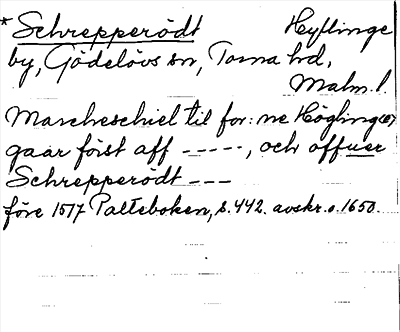 * Schrepperödt Heyflinge
by, Gödelövs sn, Torna hd,
Malm. l.
Marcheschiel til for: ne Höglinge
gaar först aff -----, och offuer
Schrepperödt ---
före 1517 Palteboken, s. 442. avskr. o. 1650.